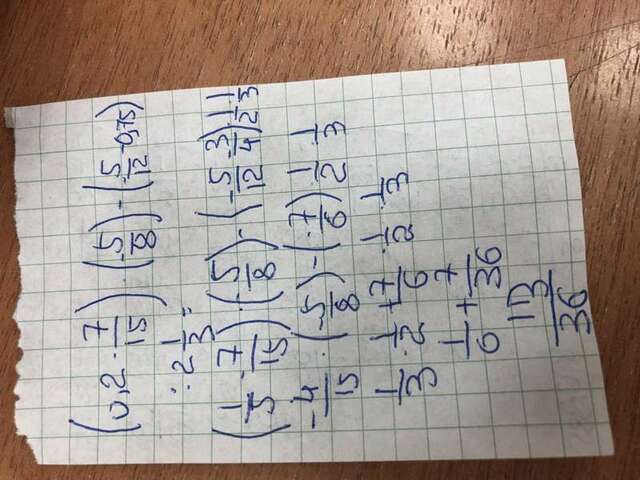 (0,2 - 7/15) · (-5/8) - (-5/12 - 0,75)
: 2 1/3 =
(1/5 - 7/15) · (-5/8) - (-5/12 - 3/4) · 1/2 · 1/3
-4/15 · (-5/8) - (-7/6) · 1/2 · 1/3
1/3 · 1/2 + 7/6 · 1/2 · 1/3
1/6 + 7/36
13/36